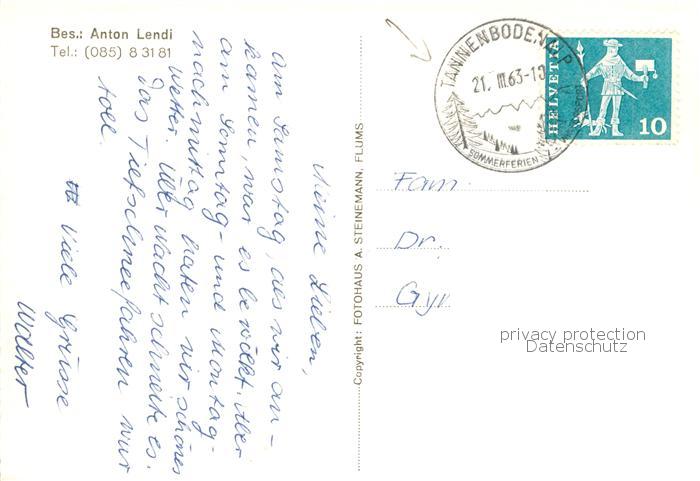 Bes.: Anton Lendi
Tel.: (085) 8 31 81
Meine Lieben,
am Samstag, als wir an-
kamen, war es bewölkt. Aber
am Sonntag- und Montag-
nachmittag hatten wir schönes
Wetter. Über Nacht schneite es.
Das Tiefschneefahren war
toll.
Viele Grüsse
Walter
Copyright: FOTOHAUS A. STEINEMANN, FLUMS
TANNENBODENALP
21. III. 63-10
SOMMERFERIEN
HELVETIA
10
Fam.
Dr.
Gyr
privacy protection
Datenschutz